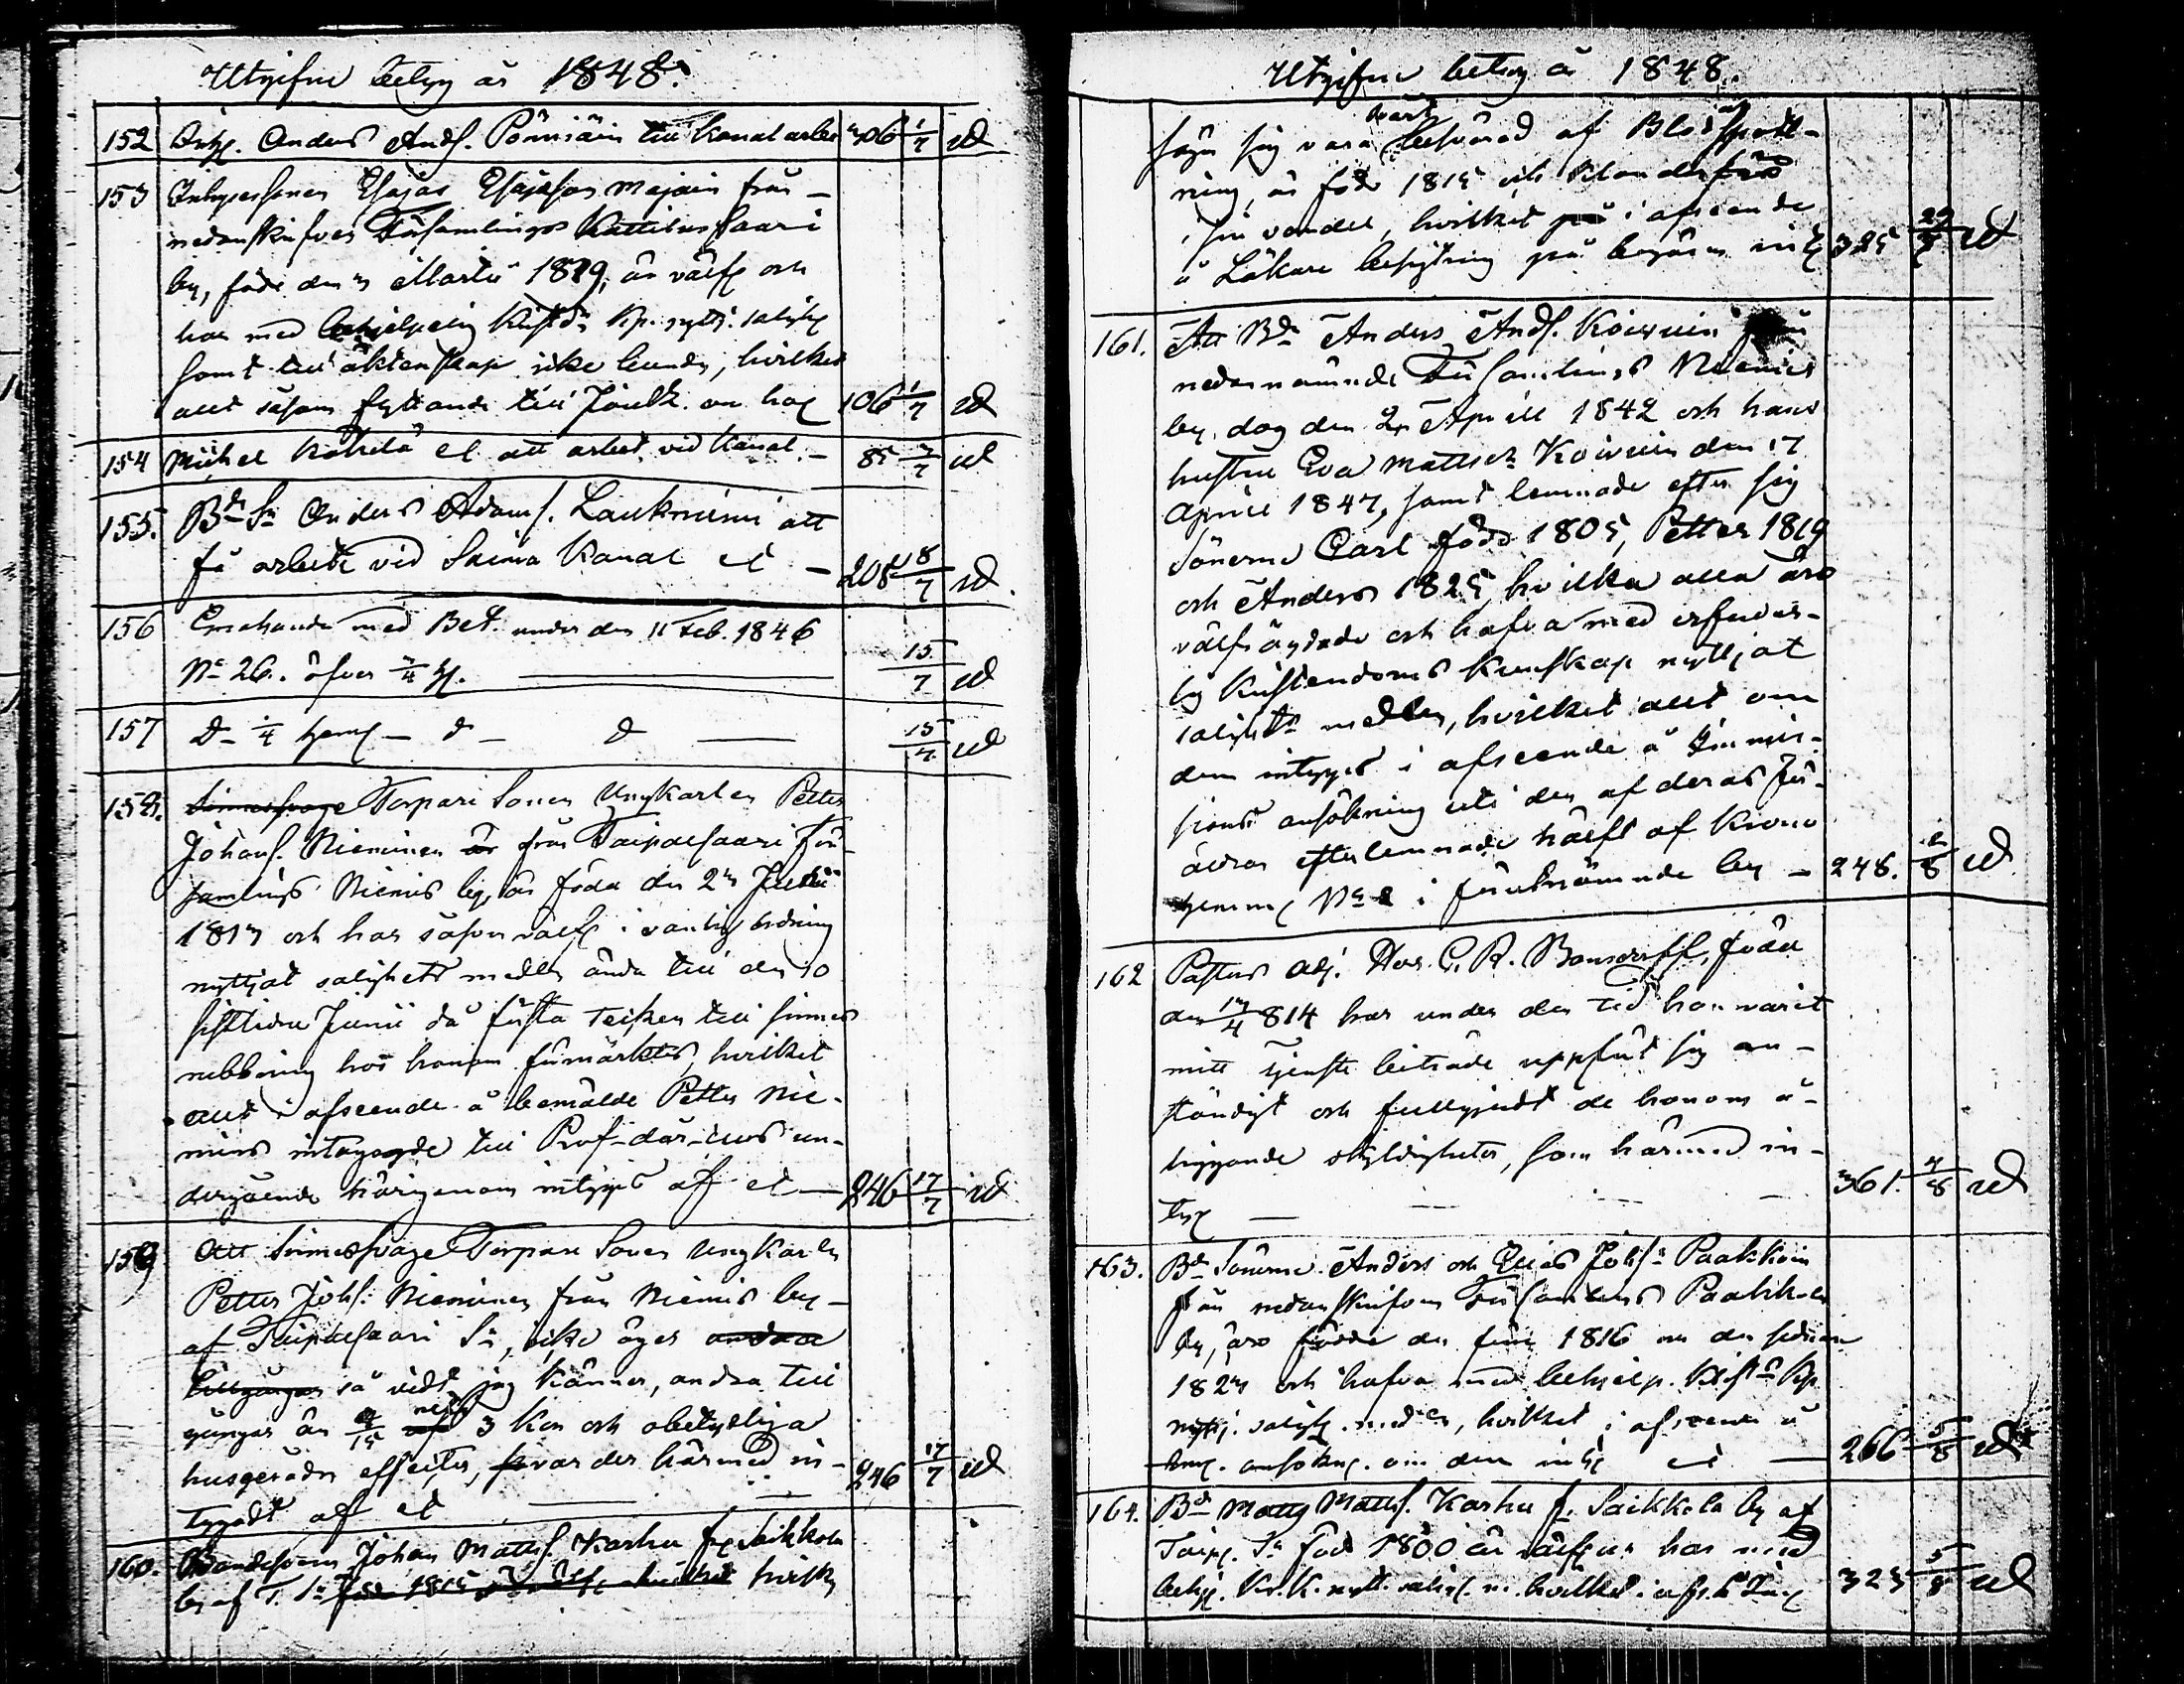 Utgifne betyg år 1848.
152 Inhys. Anders Ands. Pönniäin till Kanal arbe 306 1/7 ut
153 Inhysessonen Esajas Esajasson Majain från
nedanskrifves Församlings Kattilus Saari
by, född den 3 Martii 1819, är välfr och
har med behjelpelig Kristd: Kp. nyttj. saligh
samt till äktenskap icke bunde, hvilket
allt såsom flyttande till Joutz. 106 1/7 ut
154 Michel Kätkelä et att arbet. vid Kanal. 85 3/7 ut
155. Bd: Sn Anders Adams. Laukniemi att
få arbete vid Saima Kanal et — 208 8/7 ut.
156 Emahanda med Bet. under den 11 Feb. 1846
No 26. öfver 3/4 hem. 15/7 ut
157 D- 1/4 hem — d — d — 15/7 ut
158. Sinnessvage Torpare Sonen Ungkarlen Petter
Johans. Nieminen är från Taipalsaari För-
samlings Niemis by, är födde den 23 Julii
1813 och har såsom välfr i vanlig ordning
nyttjat salighets medlen ända till den 10
sistlidne Junii då första tecken till sinnes
rubbning hos honom förmärktes, hvilket
allt i afseende å bemälde Petter Nie-
mins intagande till Prof-dår-hus un-
dergående härigenom intygas af et — 246 17/7 ut
159 Att Sinnessvage Torpare Sonen Ungkarlen
Petter Johs. Nieminen från Niemis by
af Taipalsaari Sn, icke äger andra
tillgångar så vidt jag känner, andra till
gångar än 3 kor och obetydliga
husgeråds effecter, varder härmed in-
tygadt af et — 246 17/7 ut
160. Bondesonen Johan Matts. Karhu fr Saikkola
by af T. Sn född 1815 är välfr hvilket hvilk
Utgifne betyg år 1848.
säger sig vara svårt besvärad af Blodspott-
ning, är född 1815 och klanderfri
i sin vandel, hvilket på i afseende
å Läkare besigtning på begäran int 325 29/7 ut
161. Att Bd: Anders Ands. Koivuin från
nedannämnde Församlings Niemis
by dog den 2 April 1842 och hans
hustru Eva Mattsdr Koivuin den 17
April 1847, samt lemnade efter sig
Sönerne Carl född 1805, Petter 1819
och Anders 1825, hvilka alla äro
välfrägdade och hafva med erforder-
lig Kristendoms Kunskap nyttjat
salighets medlen, hvilket allt om
dem intygas i afseende å Immis-
sions ansökning uti den af deras För-
äldrar efterlemnade hälft af Krono
hemm No 2 i förutnämnde by — 248. /8 ut
162 Pastors Adj. Hos. C. R. Bonsdorff, född
den 13/4 814 har under den tid han varit
mitt tjenste biträde uppfört sig an-
ständigt och fullgjort de honom å-
liggande skyldigheter, som härmed in-
tyg — 361. 4/8 ut
163. Bd: Sönerne Anders och Elias Johs: Paakkoin
från nedanskrifven Församlings Paakkola
by, äro födde den förre 1816 och den sednare
1823 och hafva med behjelp. Krist: Kp
nyttj. saligh. medlen, hvilket i afseende å
ansökng. om dem intg et — 266 5/8 ut
164. Bd: Matts Matts. Karhu f. Saikkola by af
Taip. Sn född 1800 är välfr har med
behj. Kr. K. nytt. saligh. m. hvilket i afs. å 323 5/8 ut